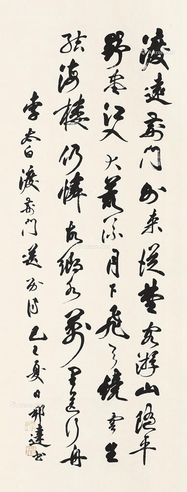 渡遠荊門外來從楚國游山隨平
野盡江入大荒流月下飛天鏡雲生
結海樓仍憐故鄉水萬里送行舟
李太白渡荊門送別詩 夏日 書